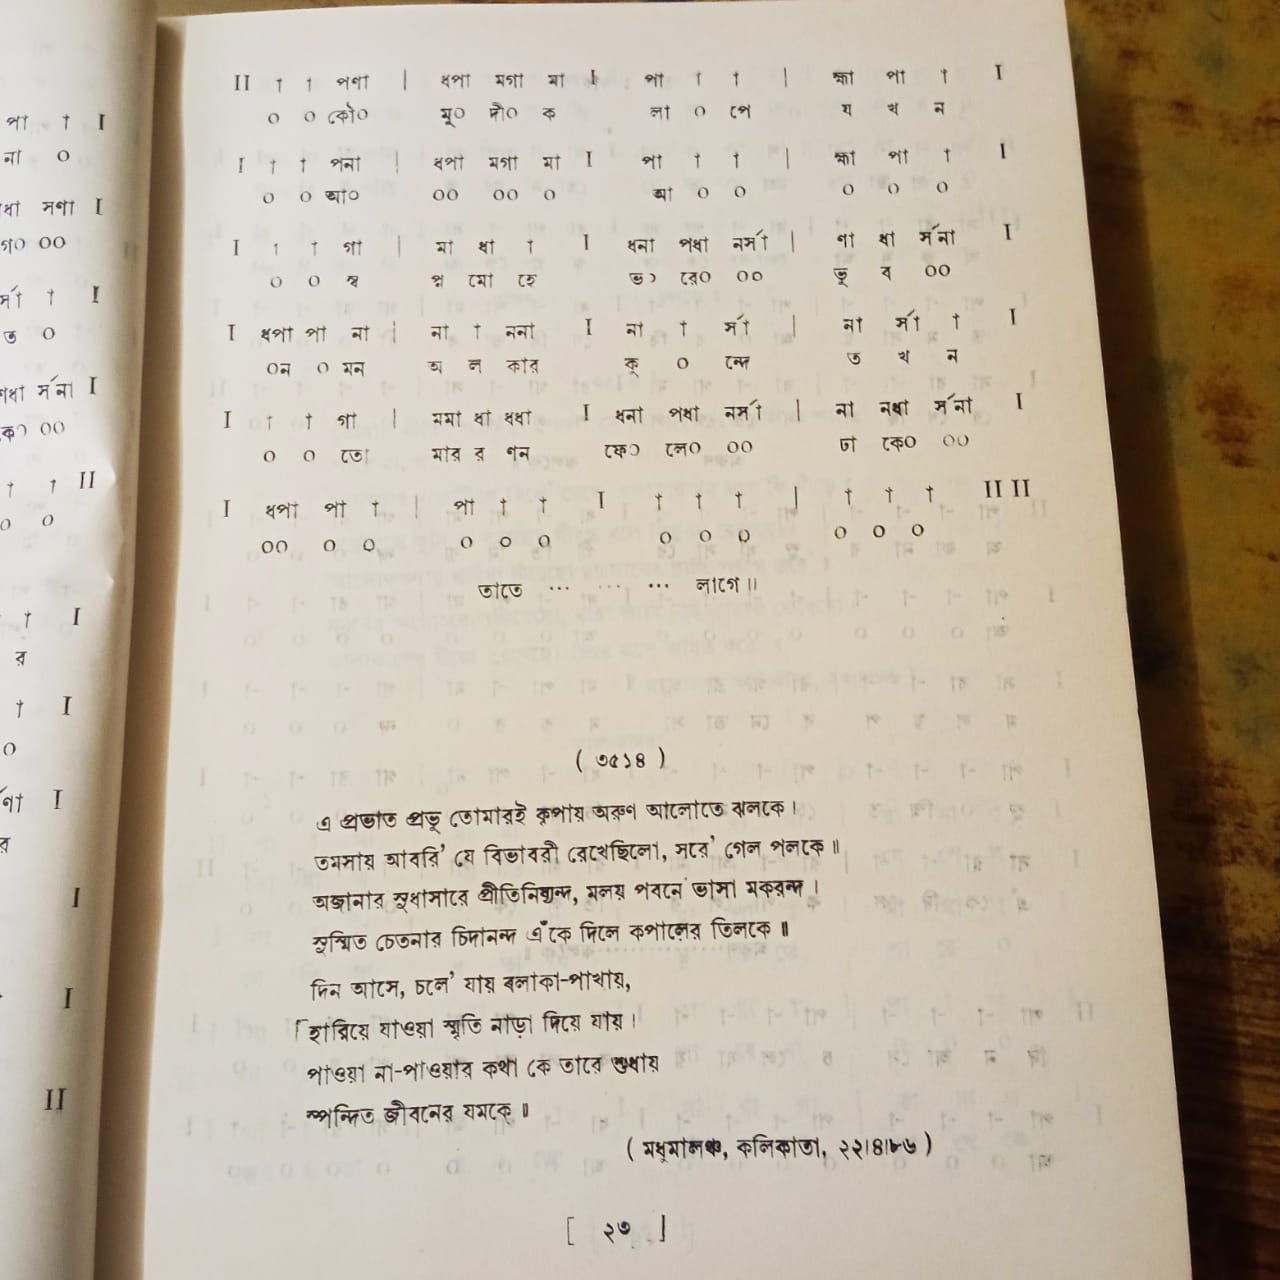 পা † I
না ০
ধা মণা I
গ০ ০০
র্সা † I
ত ০
ণধা র্সনা I
কে০ ০০
† † II
০ ০
† I
র
† I
০
র্ণা I
র
I
I
II
II † † পণা | ধপা মগা মা I পা † † | ক্ষা পা † I
০ ০ কৌ০ মু০ দী০ ক লা ০ পে য খ ন
I † † পনা | ধপা মগা মা I পা † † | ক্ষা পা † I
০ ০ আ০ ০০ ০০ ০ আ ০ ০ ০ ০ ০
I † † গা | মা ধা † I ধনা পধা নর্সা | ণা ধা র্সনা I
০ ০ স্ব প্ন মো হে ভ০ রে০ ০০ ভূ ব ০০
I ধপা পা না | না † ননা I না † র্সা | না র্সা † I
০ন ০ মন অ ল কার কু ০ ন্দে ত খ ন
I † † গা | মমা ধা ধধা I ধনা পধা নর্সা | না নধা র্সনা I
০ ০ তো মার র ণন ফে০ লে০ ০০ ঢা কে০ ০০
I ধপা পা † | পা † † I † † † | † † † II II
০০ ০ ০ ০ ০ ০ ০ ০ ০ ০ ০ ০
তাতে ... ... ... লাগে॥
( ৩৫১৪ )
এ প্রভাত প্রভু তোমারই কৃপায় অরুণ আলোতে ঝলকে।
তমসায় আবরি’ যে বিভাবরী রেখেছিলো, সরে’ গেল পলকে॥
অজানার সুধাসারে প্রীতিনিষ্যন্দ, মলয় পবনে ভাসা মকরন্দ।
সুস্মিত চেতনার চিদানন্দ এঁকে দিলে কপালের তিলকে॥
দিন আসে, চলে’ যায় বলাকা-পাখায়,
হারিয়ে যাওয়া স্মৃতি নাড়া দিয়ে যায়।
পাওয়া না-পাওয়ার কথা কে তারে শুধায়
স্পন্দিত জীবনের যমকে॥
( মধুমালঞ্চ, কলিকাতা, ২২।৪।৮৬ )
[ ২৩ ]